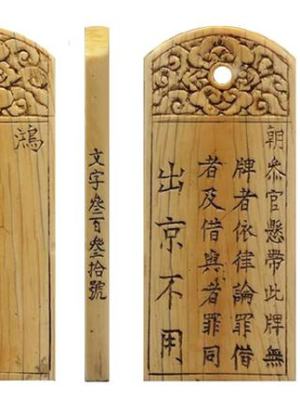 朝參官懸帶此牌無
牌者依律論罪借
者及借與者罪同
出京不用
文字叁百叁拾號
鴻